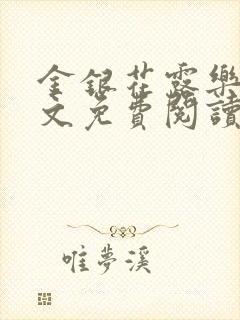 金銀花露樂
文免費閱讀
唯夢溪